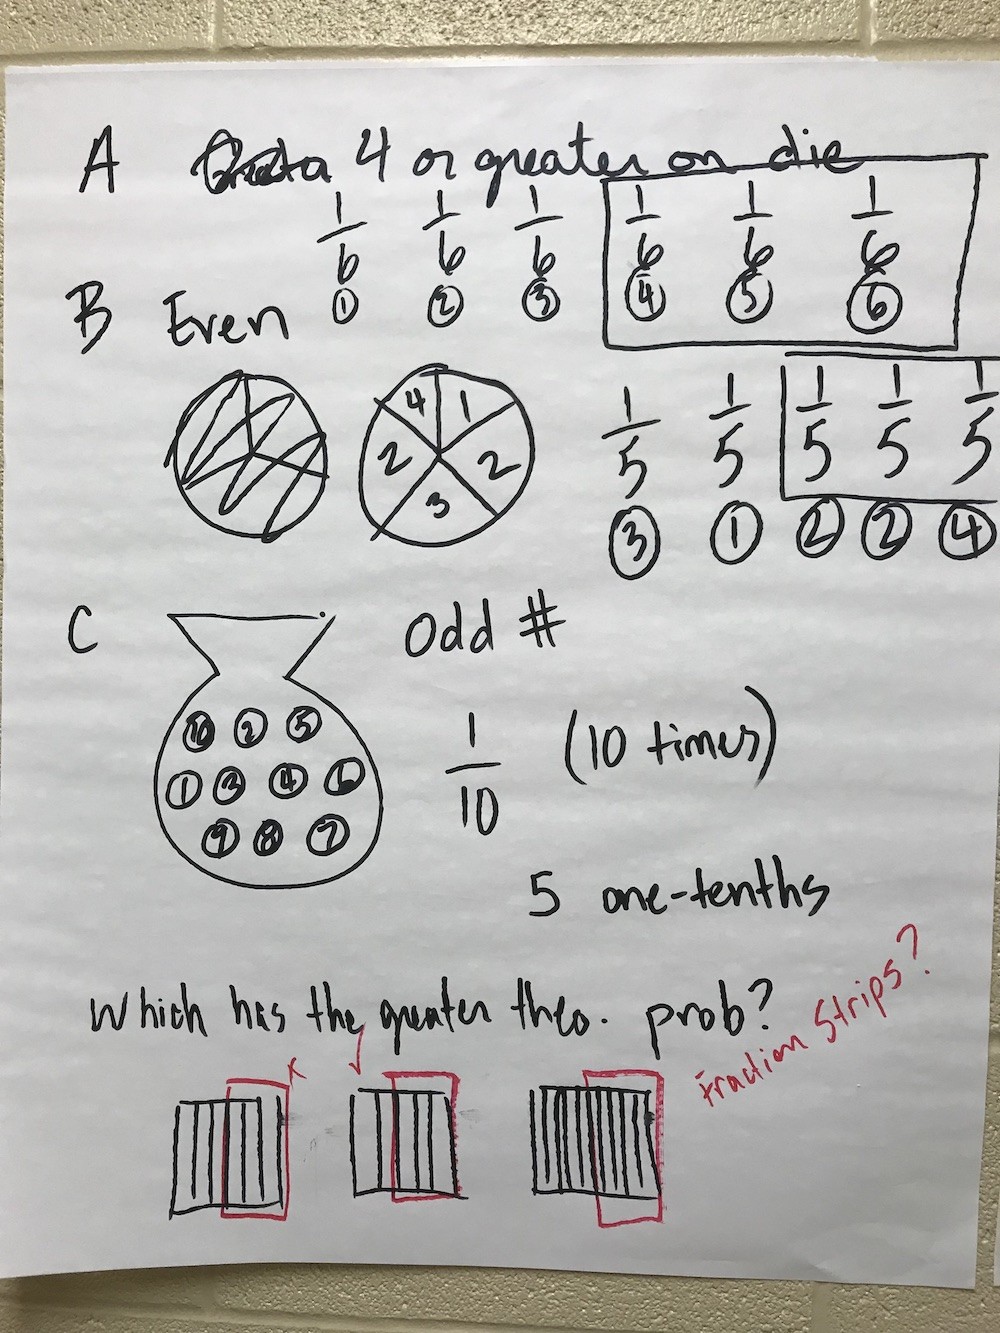 A 4 or greater on die
1/6 1/6 1/6 1/6 1/6 1/6
1 2 3 4 5 6
B Even
4 1
2 2
3
1/5 1/5 1/5 1/5 1/5
3 1 2 2 4
C Odd #
10 2 5
1 3 4 6
9 8 7
1/10 (10 times)
5 one-tenths
Which has the greater theo. prob?
Fraction Strips?